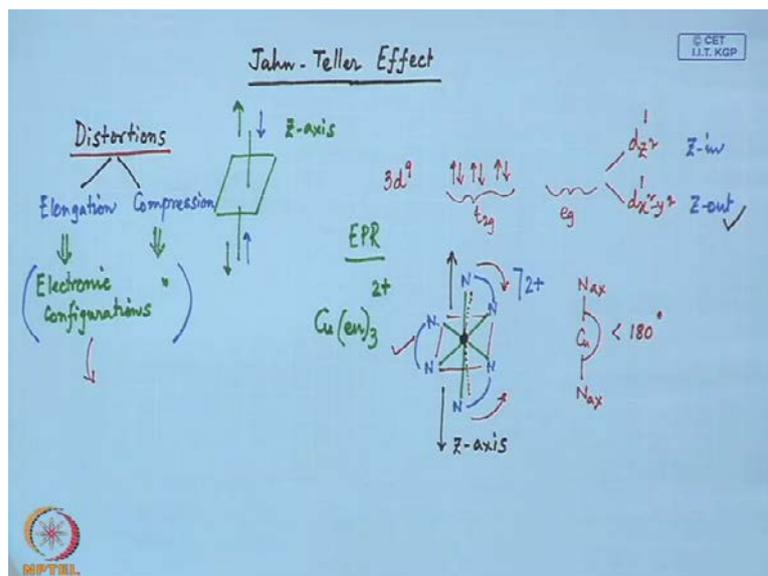 © CET
I.I.T. KGP
Jahn-Teller Effect
Distortions
Z-axis
Elongation Compression
Electronic "
Configurations
3d⁹ ↑↓ ↑↓ ↑↓
t₂g
eg
dz² Z-in
dx²-y² Z-out ✓
EPR
Cu(en)₃²⁺
N
N N
N N
N
]2+
Z-axis
Nax
Cu < 180°
Nax
NPTEL